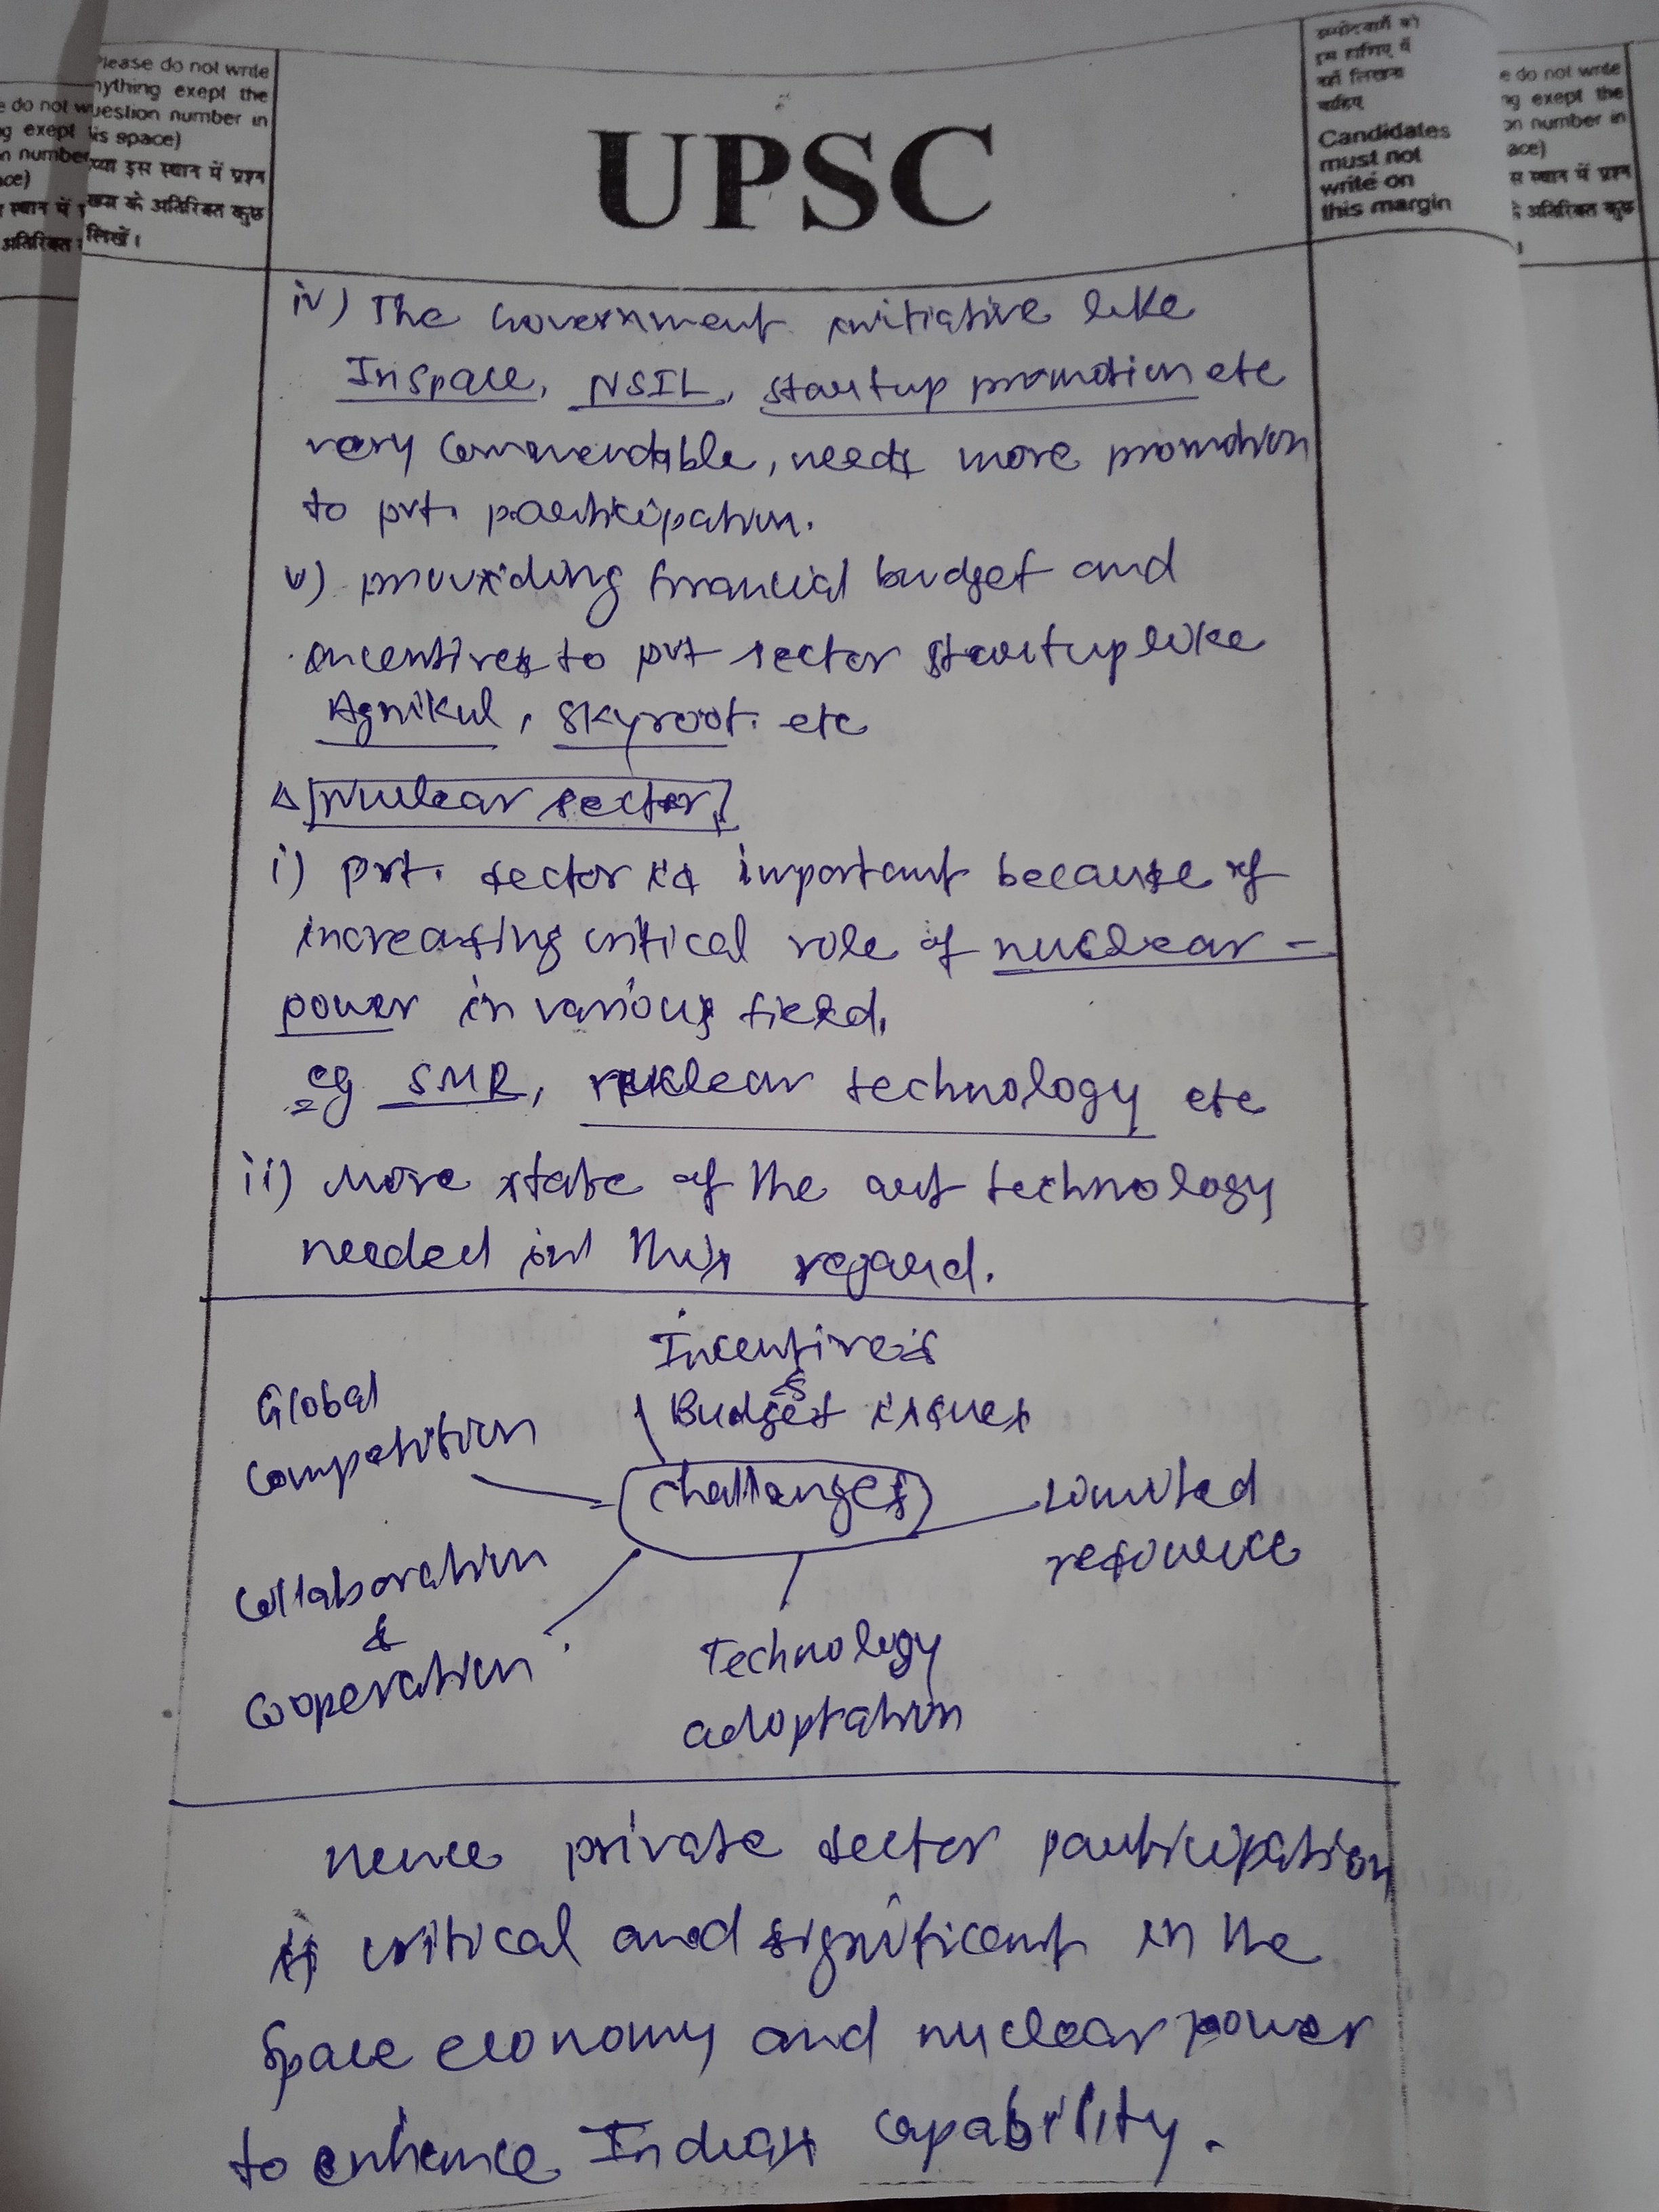 Please do not write
anything exept the
question number in
this space)
इस स्थान में प्रश्न
के अतिरिक्त कुछ
लिखें।
UPSC
उम्मीदवारों को
इस हाशिए में
नहीं लिखना
चाहिए
Candidates
must not
write on
this margin
e do not write
ng exept the
on number in
ace)
स स्थान में प्रश्न
के अतिरिक्त कुछ
e do not w
g exept
n number
ace)
स्थान में
अतिरिक्त
iv) The Government initiative like
Inspace, NSIL, startup promotion etc
very commendable, needs more promotion
to pvt. participation.
v) providing financial budget and
incentives to pvt sector startup like
Agnikul, Skyroot. etc
Δ [Nuclear sector]
i) pvt. sector is important because of
increasing critical role of nuclear -
power in various field.
eg SMR, nuclear technology etc
ii) More state of the art technology
needed in this regard.
Incentive's
&
Budget issues
Global
competition
challanges
Limited
resource
Collaboration
&
Cooperation.
Technology
adoptation
Hence private sector participation
is critical and significant in the
Space economy and nuclear power
to enhance Indian capability.